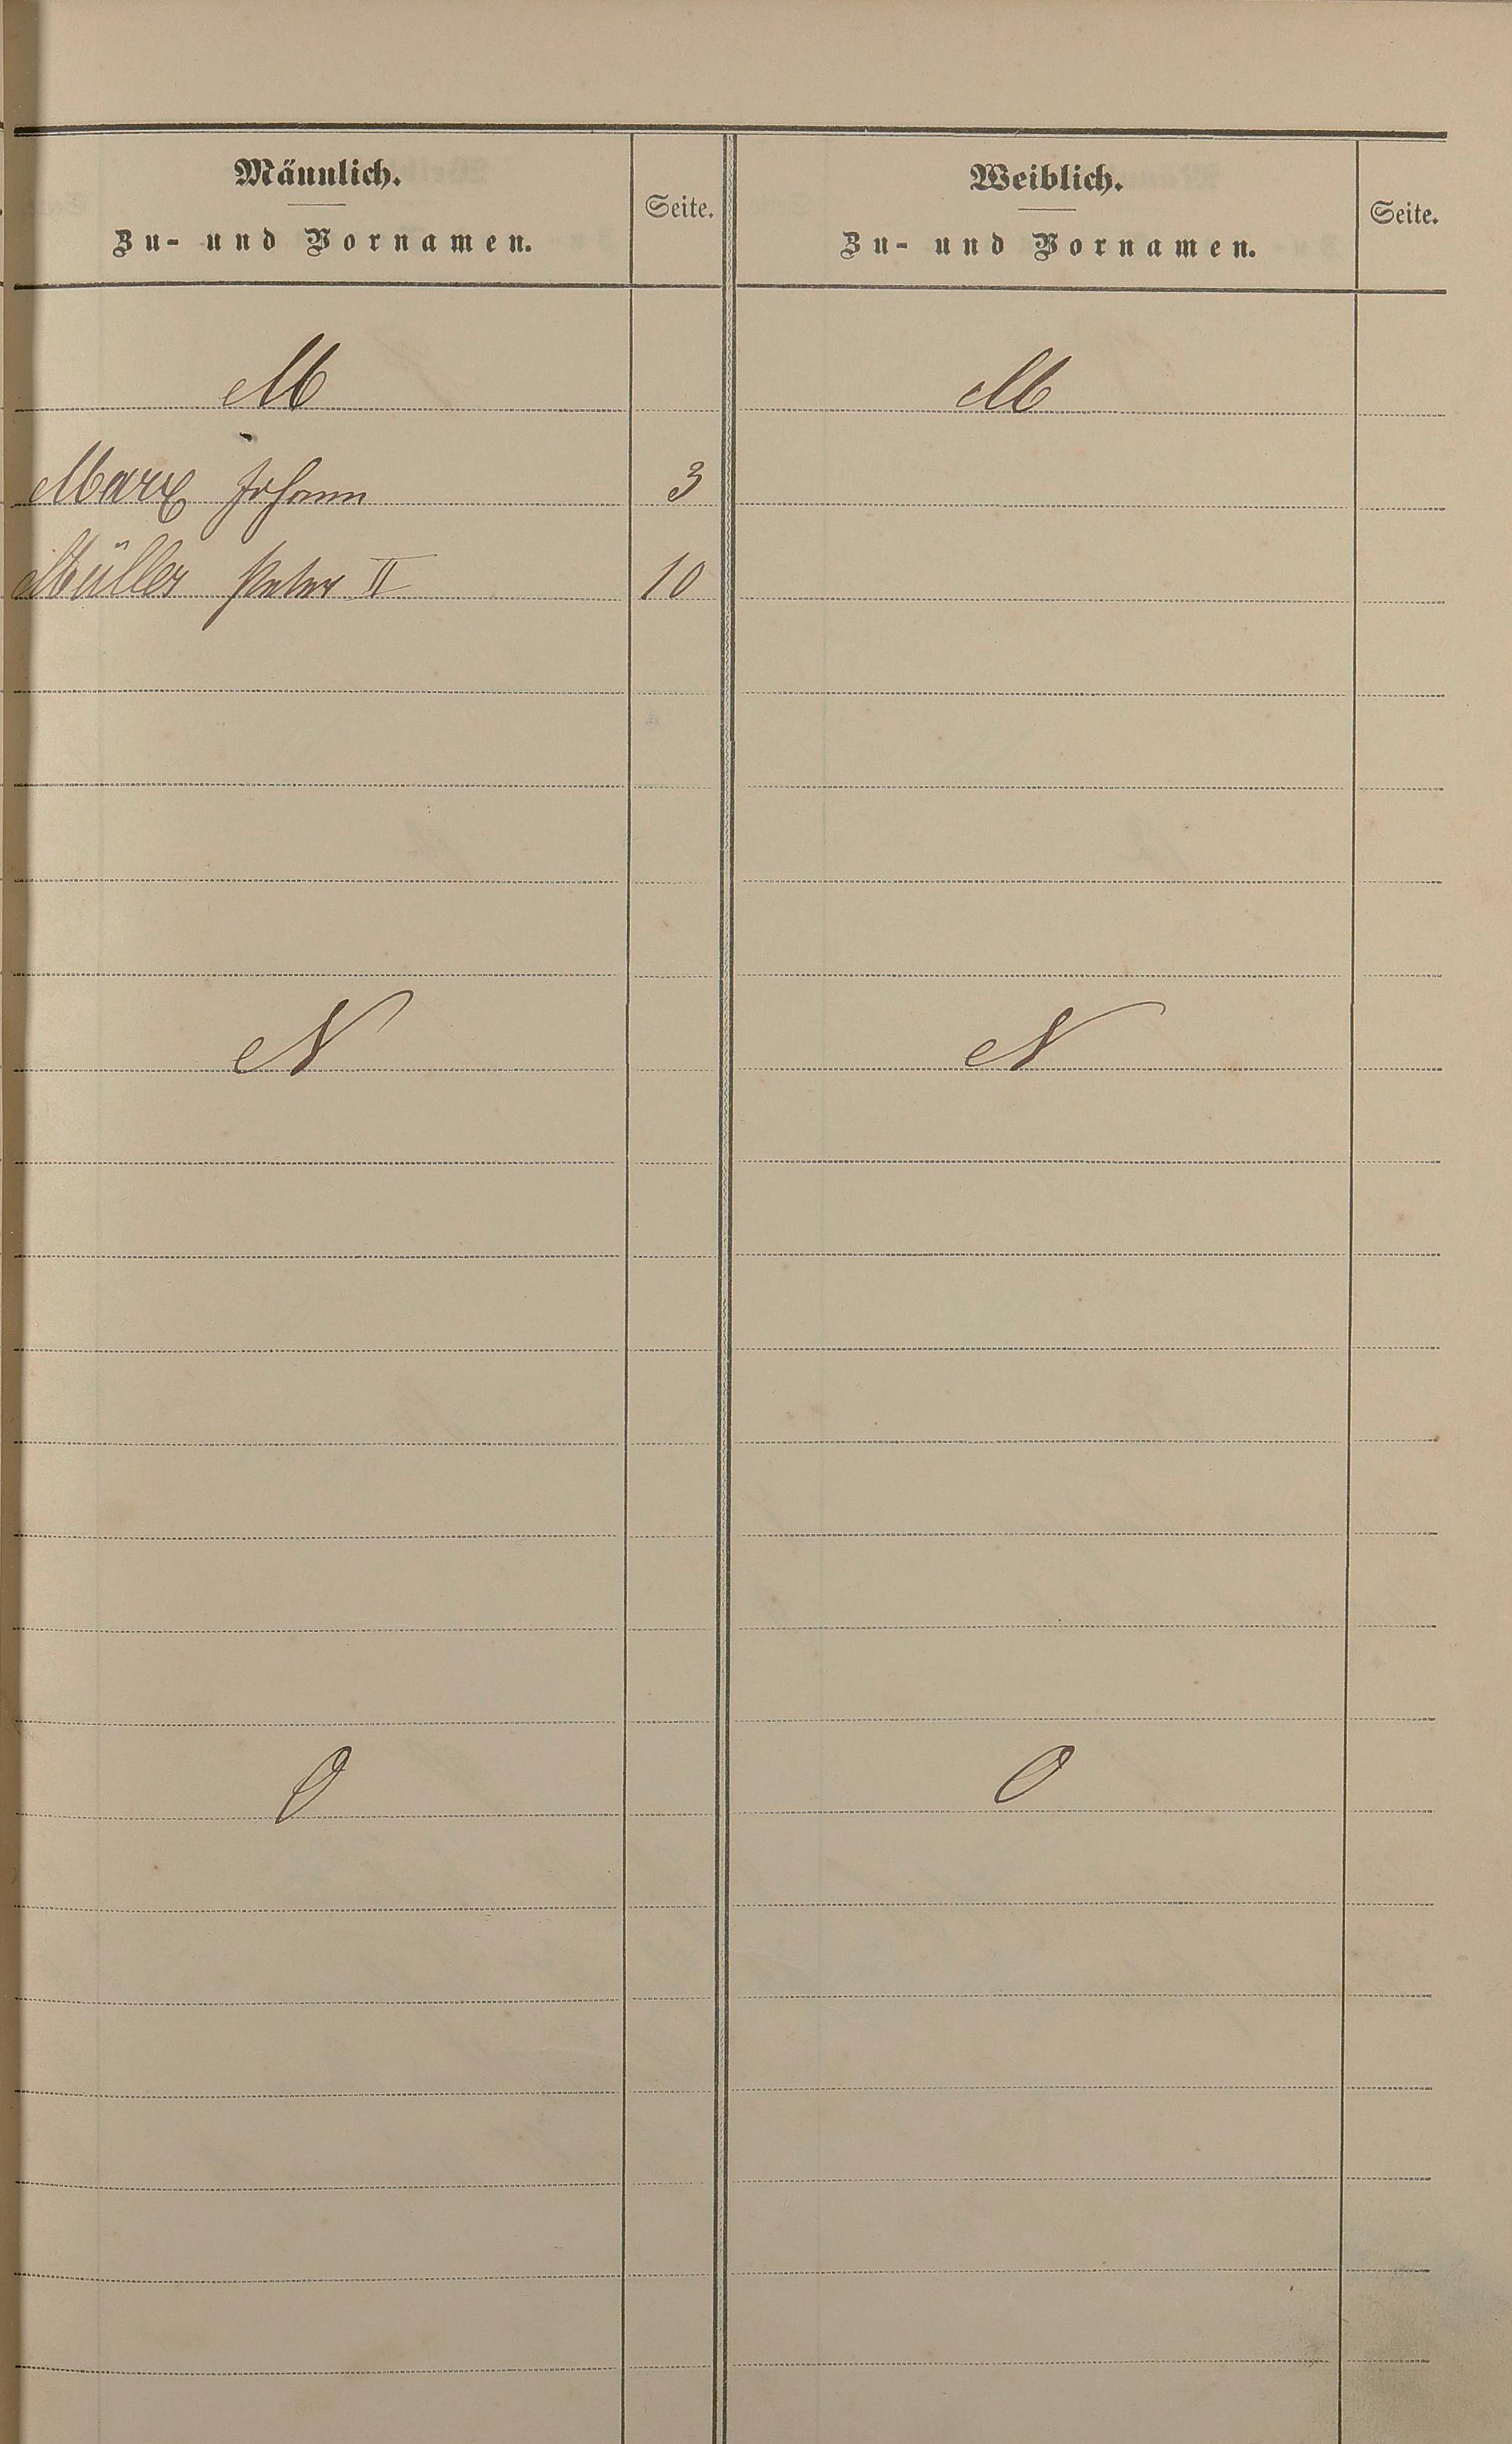 Männlich.
Zu- und Vornamen.
Seite.
Weiblich.
Zu- und Vornamen.
Seite.
M
M
Marx Johann 3
Müller Peter II 10
N
N
O
O